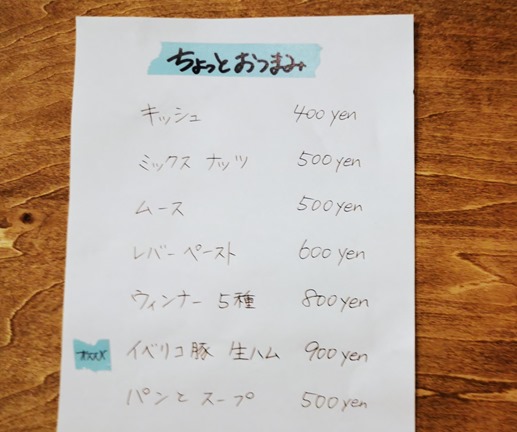 ちょっとおつまみ
キッシュ 400 yen
ミックス ナッツ 500 yen
ムース 500 yen
レバーペースト 600 yen
ウィンナー 5種 800 yen
オススメ イベリコ豚 生ハム 900 yen
パンと スープ 500 yen